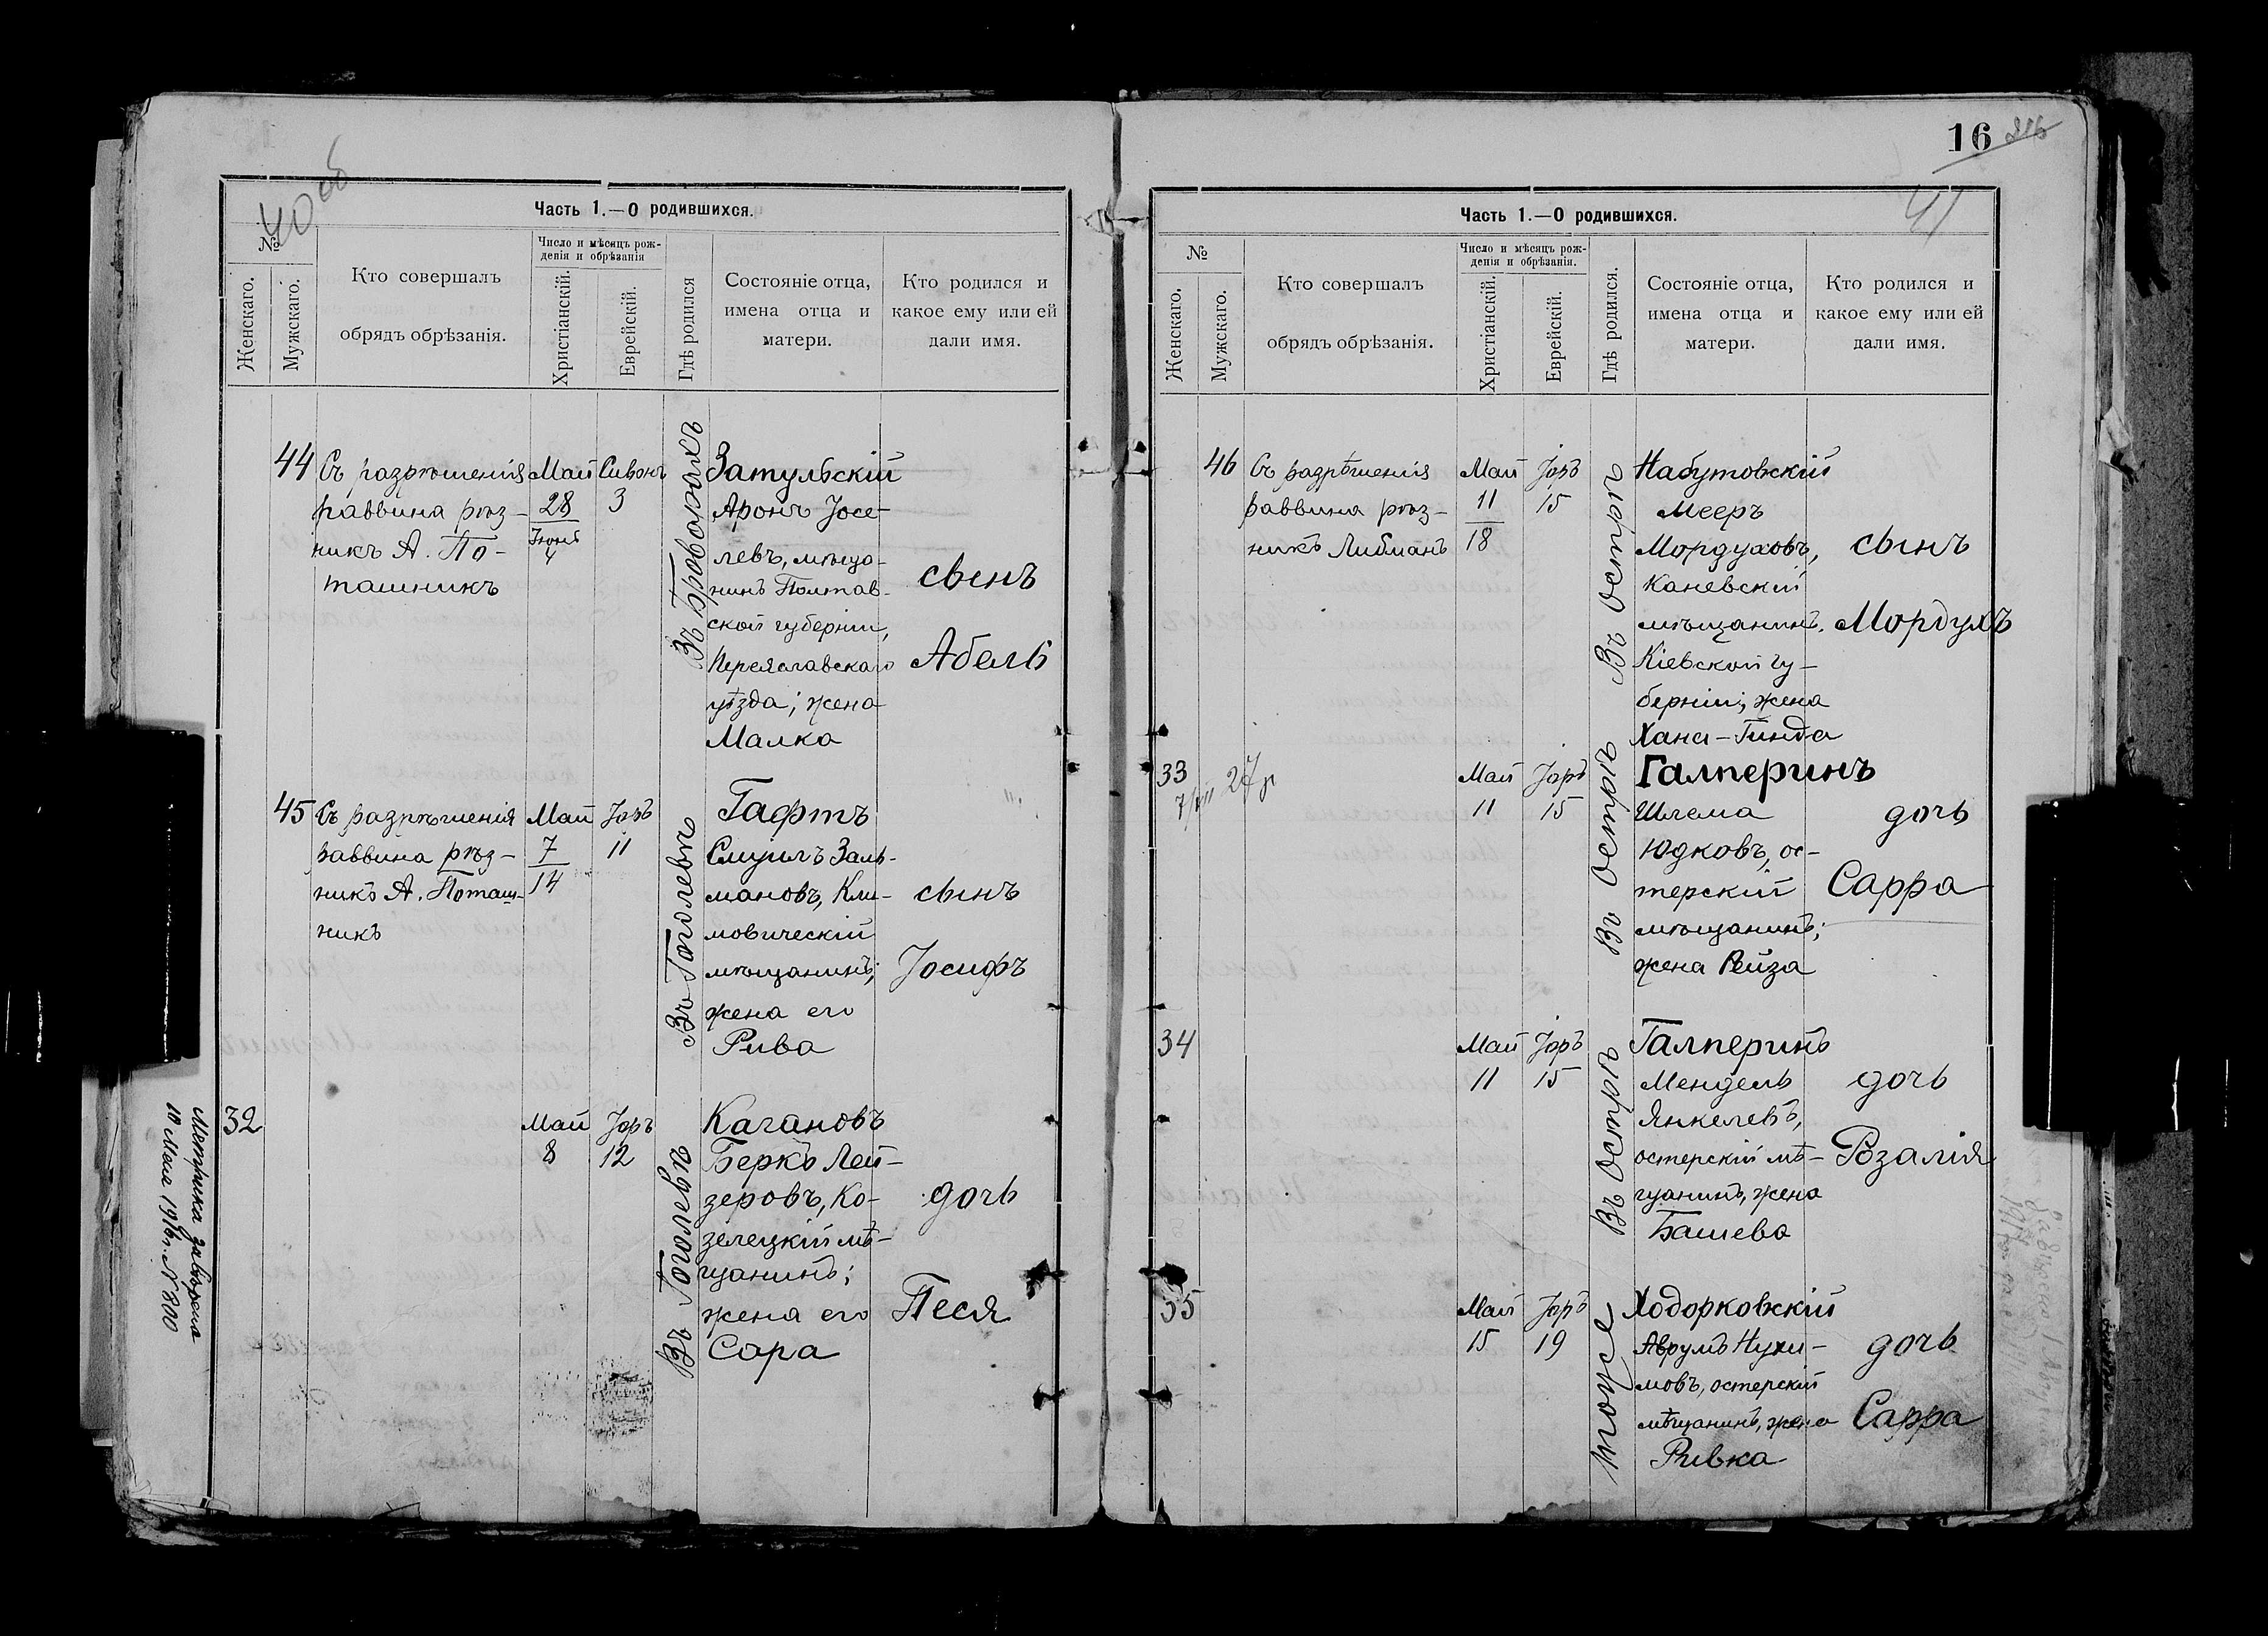 40 об
Часть 1.—О родившихся.
№
Женскаго.
Мужскаго.
Кто совершалъ
обрядъ обрѣзанія.
Число и мѣсяцъ рож-
денія и обрѣзанія
Христіанскій.
Еврейскій.
Гдѣ родился
Состояніе отца,
имена отца и
матери.
Кто родился и
какое ему или ей
дали имя.
44
Съ разрѣшенія
раввина рѣз-
никъ А. По-
ташникъ
Май
28
Іюнь
4
Сивонъ
3
Въ Броворахъ
Затульскій
Аронъ Іосе-
левъ, мѣща-
нинъ Полтав-
ской губерніи,
Переяславскаго
уѣзда; жена
Малка
сынъ
Абель
45
Съ разрѣшенія
раввина рѣз-
никъ А. Поташ-
никъ
Май
7
14
Іоръ
11
Въ Гоголевѣ
Гафтъ
Смуилъ Заль-
мановъ, Кли-
мовическій
мѣщанинъ;
жена его
Рива
сынъ
Іосифъ
32
Май
8
Іоръ
12
Въ Гоголевѣ
Кагановъ
Беркъ Лей-
зеровъ, Ко-
зелецкій мѣ-
щанинъ;
жена его
Сора
дочь
Песя
Метрика
10 Мая 1916 г. N 800
16
41
Часть 1.—О родившихся.
№
Женскаго.
Мужскаго.
Кто совершалъ
обрядъ обрѣзанія.
Число и мѣсяцъ рож-
денія и обрѣзанія.
Христіанскій.
Еврейскій.
Гдѣ родился.
Состояніе отца,
имена отца и
матери.
Кто родился и
какое ему или ей
дали имя.
46
Съ разрѣшенія
раввина рѣз-
никъ Либманъ
Май
11
18
Іоръ
15
Въ Острѣ
Набутовскій
Мееръ
Мордуховъ,
Каневскій
мѣщанинъ.
Кіевской гу-
берніи; жена
Хана-Гинда
сынъ
Мордухъ
33
27 г
Май
11
Іоръ
15
Въ Острѣ
Галперинъ
Шлема
Юдковъ, ос-
терскій
мѣщанинъ;
жена Рейза
дочь
Сарра
34
Май
11
Іоръ
15
Въ Острѣ
Галперинъ
Мендель
Янкелевъ,
остерскій мѣ-
щанинъ, жена
Башева
дочь
Розалія
35
Май
15
Іоръ
19
тоже
Ходорковскій
Аврумъ Нухи-
мовъ, остерскій
мѣщанинъ, жена
Ривка
дочь
Сарра